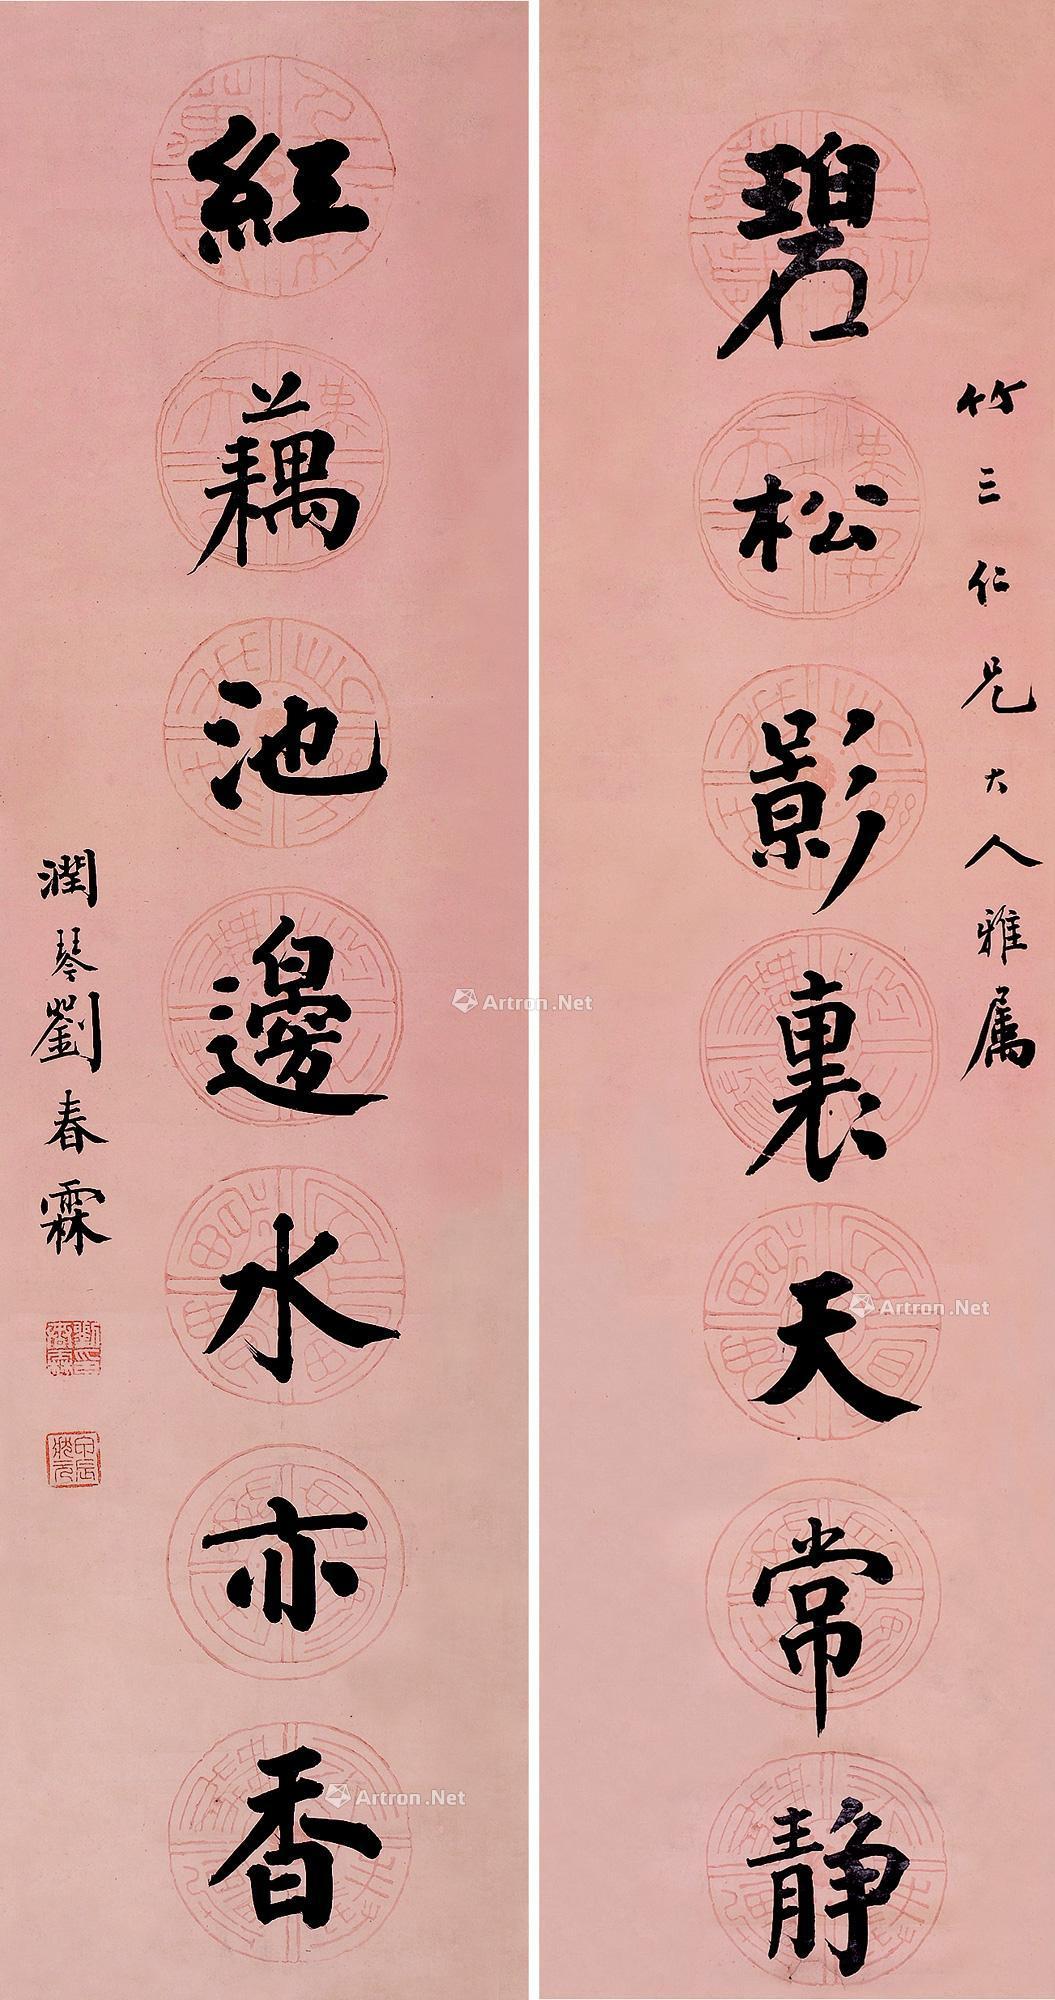 竹三仁兄大人雅属
碧松影裏天常静
紅藕池邊水亦香
潤琴劉春霖
Artron.Net
Artron.Net
Artron.Net